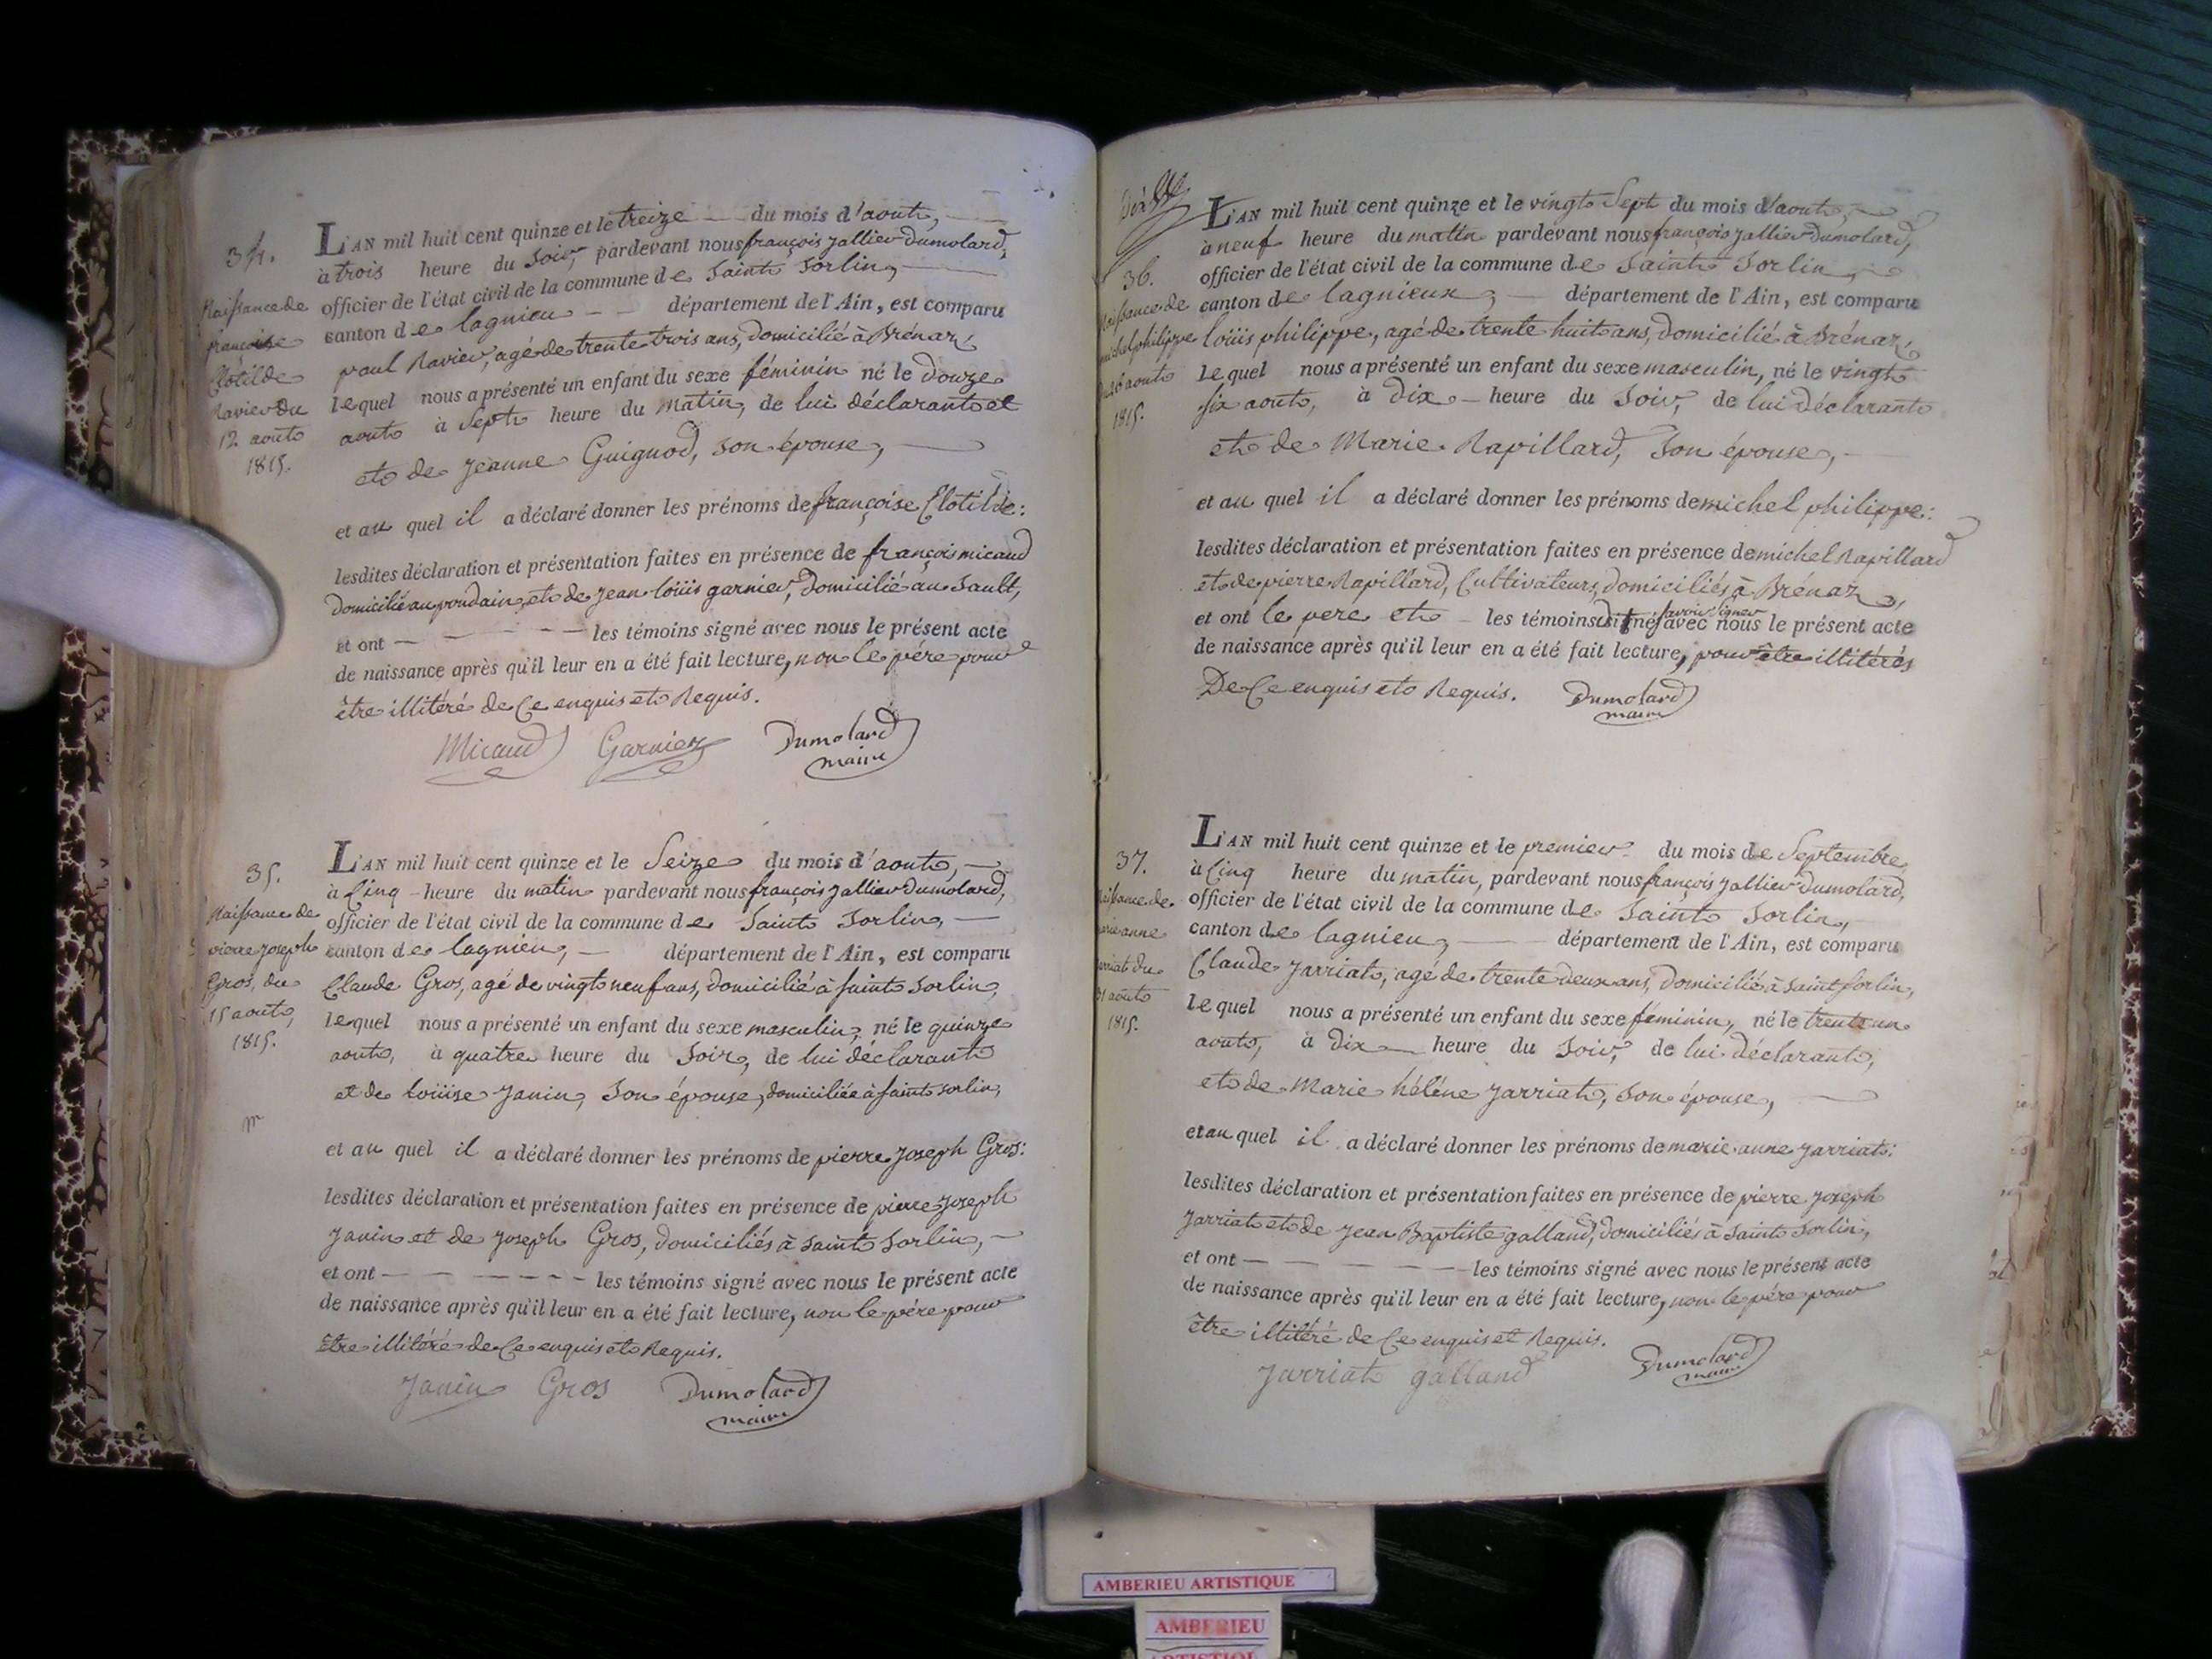 34.
Naissance de
françoise
Clotilde
Ravier du
12 aout
1815.
L'AN mil huit cent quinze et le treize — du mois d'aout, —
à trois heure du Soir, pardevant nous françois jallier Dumolard,
officier de l'état civil de la commune de Saint Sorlin, —
canton de lagnieu — — département de l'Ain, est comparu
paul Ravier, agé de trente trois ans, domicilié à Brénaz,
lequel nous a présenté un enfant du sexe féminin né le Douze
aout à Sept heure du Matin, de lui déclarant et
et de Jeanne Guignod, son épouse, —
et au quel il a déclaré donner les prénoms de françoise Clotilde:
lesdites déclaration et présentation faites en présence de françois micaud
domicilié au poudain, et de jean loüis garnier, domicilié au Sault,
et ont — — — — les témoins signé avec nous le présent acte
de naissance après qu'il leur en a été fait lecture, non le pére pour
être illitéré de Ce enquis et Requis.
Micaud Garnier Dumolard
maire
35.
Naissance de
pierre joseph
Gros, du
15 aout,
1815.
m
L'AN mil huit cent quinze et le Seize du mois d'aout, —
à Cinq — heure du matin pardevant nous françois jallier Dumolard,
officier de l'état civil de la commune de Saint Sorlin, —
canton de lagnieu, — département de l'Ain, est comparu
Claude Gros, agé de vingt neuf ans, domicilié à saint Sorlin,
lequel nous a présenté un enfant du sexe masculin, né le quinze
aout, à quatre heure du Soir, de lui déclarant
et de loüise Janin, Son épouse, domiciliée à saint sorlin,
et au quel il a déclaré donner les prénoms de pierre Joseph Gros:
lesdites déclaration et présentation faites en présence de pierre Joseph
Janin et de Joseph Gros, domiciliés à Saint Sorlin, —
et ont — — — — — les témoins signé avec nous le présent acte
de naissance après qu'il leur en a été fait lecture, non le pére pour
être illitéré de Ce enquis et Requis.
Janin Gros Dumolard
maire
36.
Naissance de
michel philippe
du 26 aout
1815.
L'AN mil huit cent quinze et le vingt Sept du mois d'aout,
à neuf heure du matin pardevant nous françois jallier Dumolard,
officier de l'état civil de la commune de Saint Sorlin,
canton de lagnieux, — département de l'Ain, est comparu
loüis philippe, agé de trente huit ans, domicilié à Brénaz,
lequel nous a présenté un enfant du sexe masculin, né le vingt
six aout, à Dix — heure du Soir, de lui déclarant
et de Marie Rapillard, Son épouse, —
et au quel il a déclaré donner les prénoms de michel philippe:
lesdites déclaration et présentation faites en présence de michel Rapillard
et de pierre Rapillard, Cultivateurs, domiciliés à Brénaz,
savoir signer
et ont le pere et — les témoins dit ne avec nous le présent acte
de naissance après qu'il leur en a été fait lecture, pour être illitérés
De Ce enquis et Requis. Dumolard
maire
37.
Naissance de
marie anne
jarriat du
31 aout
1815.
L'AN mil huit cent quinze et le premier du mois de Septembre
à Cinq heure du matin, pardevant nous françois jallier Dumolard,
officier de l'état civil de la commune de Saint Sorlin,
canton de lagnieu, — département de l'Ain, est comparu
Claude Jarriat, agé de trente deux ans, domicilié à saint sorlin,
lequel nous a présenté un enfant du sexe féminin, né le trente un
aout, à Dix — heure du Soir, de lui déclarant,
et de Marie héléne Jarriat, Son épouse, —
et au quel il a déclaré donner les prénoms de marie anne Jarriat:
lesdites déclaration et présentation faites en présence de pierre Joseph
Jarriat et de Jean Baptiste galland, domiciliés à Saint Sorlin,
et ont — — — — — les témoins signé avec nous le présent acte
de naissance après qu'il leur en a été fait lecture, non le pére pour
être illitéré de Ce enquis et Requis.
Jarriat galland Dumolard
maire
AMBERIEU ARTISTIQUE
AMBERIEU
ARTISTIQUE